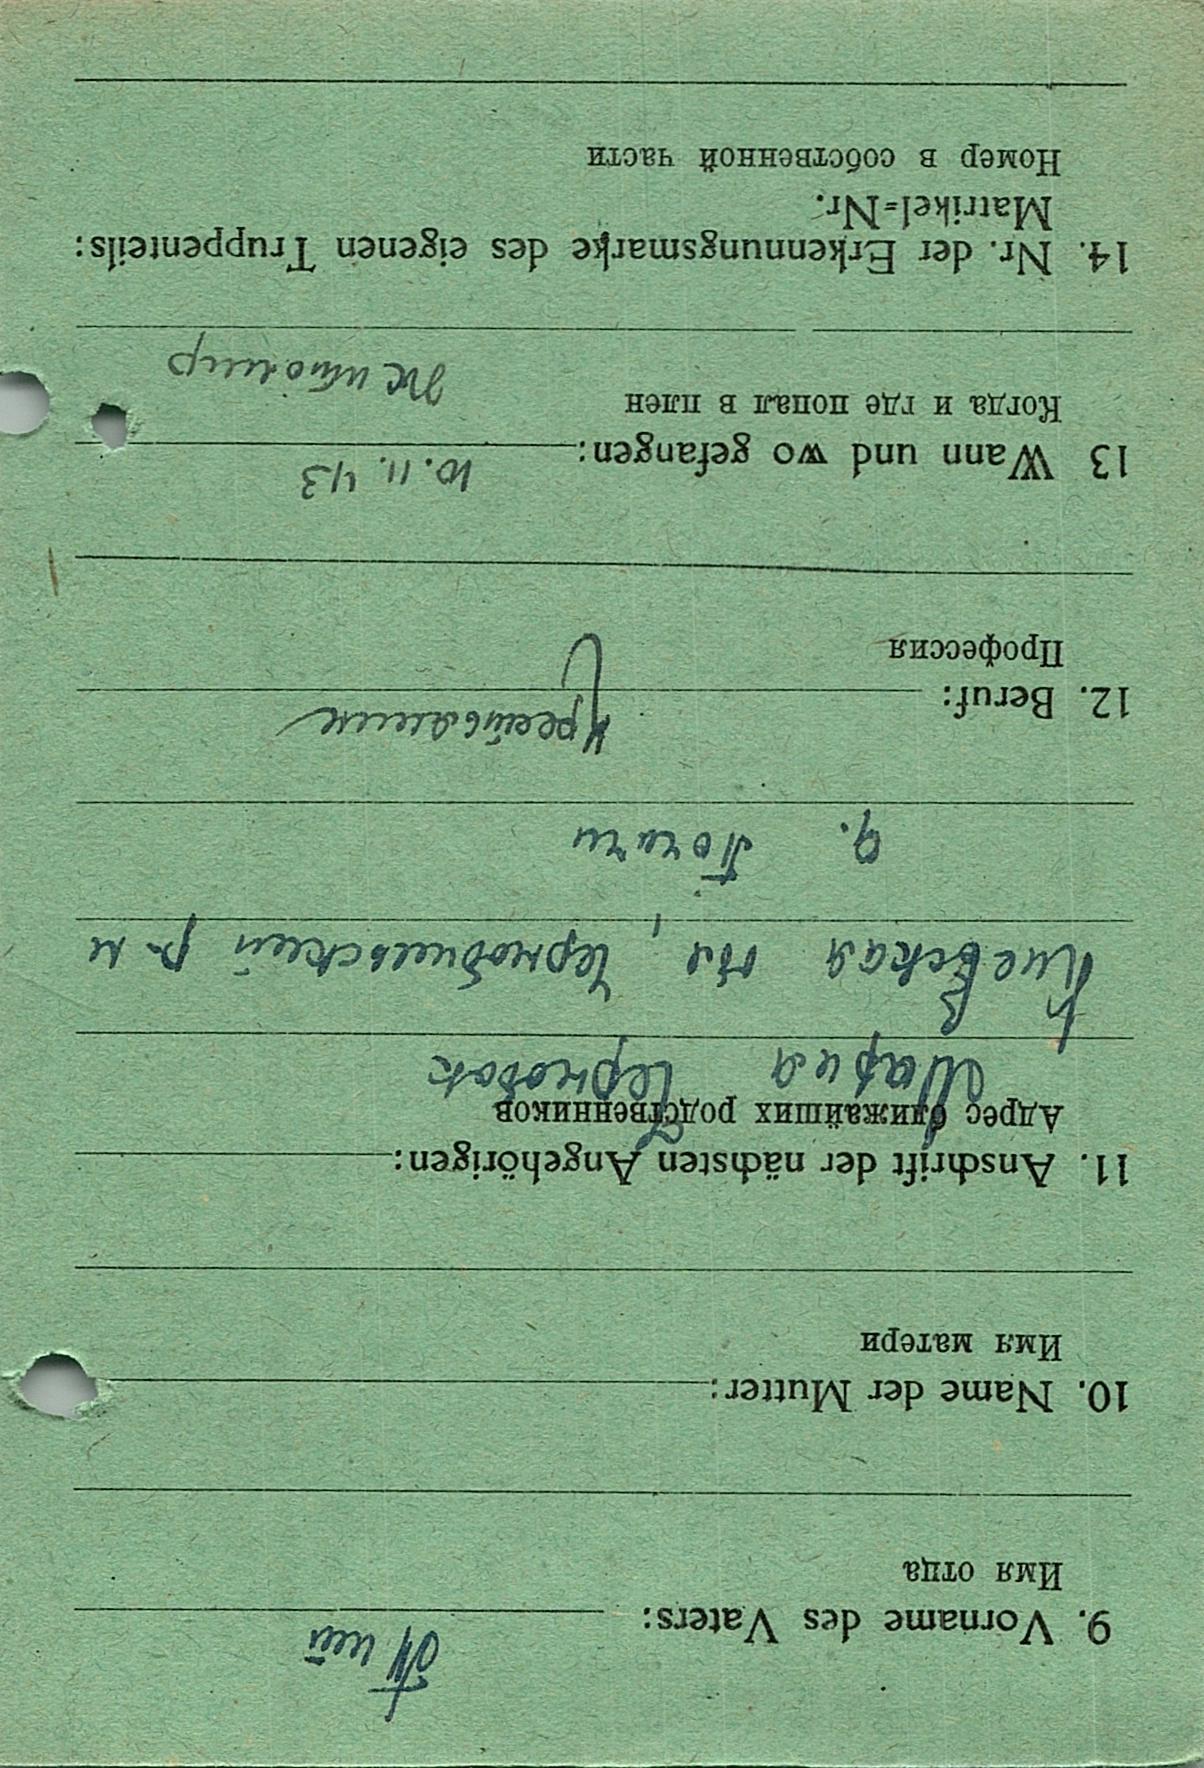 9. Vorname des Vaters:
Имя отца
10. Name der Mutter:
Имя матери
11. Anschrift der nächsten Angehörigen:
Адрес ближайших родственников
Мария Черновак
Киевская обл, Чернобильский р-н
д.
12. Beruf: крестьянин
Профессия
13 Wann und wo gefangen: 10. 11. 43
Когда и где попал в плен
Житомир
14. Nr. der Erkennungsmarke des eigenen Truppenteils:
Matrikel=Nr.
Номер в собственной части